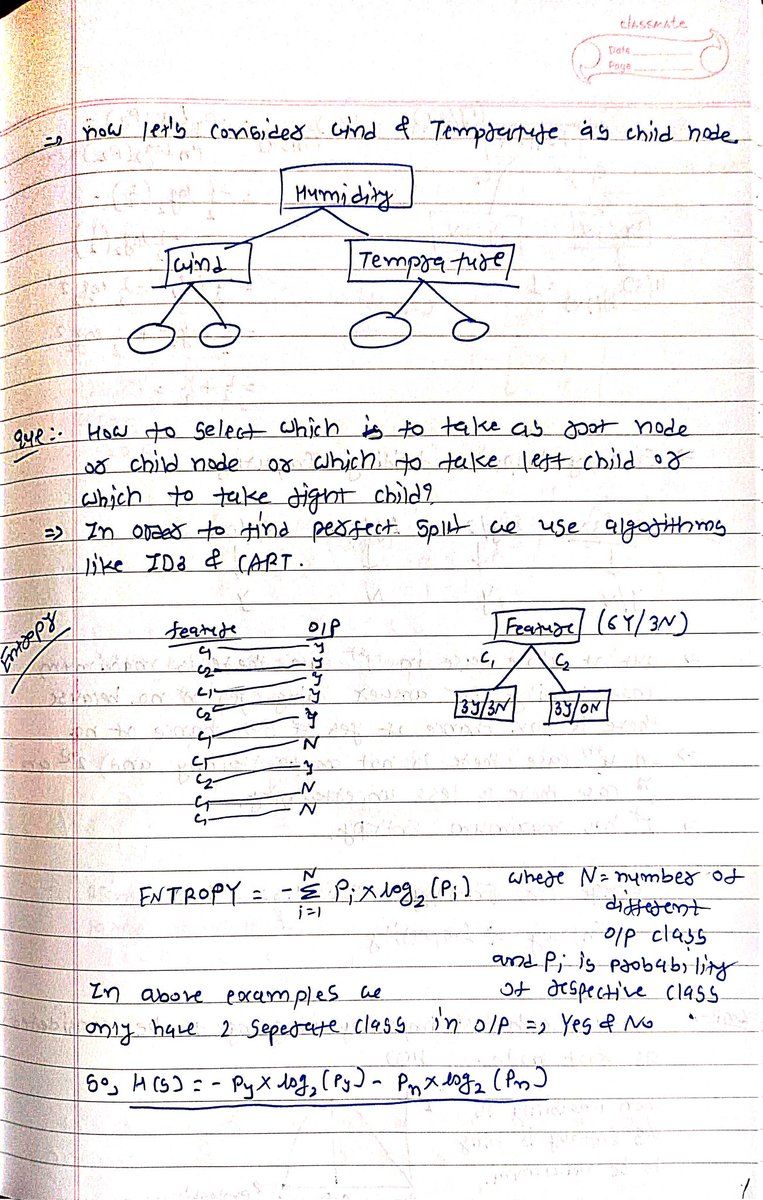 classmate
Date
Page
=> now let's consider wind & Temprature as child node.
Humidity
wind
Temprature
que:- How to select which is to take as root node
or child node or which to take left child or
which to take right child?
=> In order to find perfect split we use algorithms
like ID3 & CART.
Entropy
feature O/P
C1 Y
C2 Y
C1 Y
C2 Y
C1 Y
C1 N
C2 Y
C1 N
C1 N
Feature (6Y/3N)
C1 C2
3Y/3N 3Y/0N
ENTROPY = - Σ_{i=1}^{N} Pi × log2 (Pi)
where N = number of
different
O/P class
and Pi is probability
of respective class
In above examples we
only have 2 seperate class in O/P => Yes & No
So, H(S) = - Py × log2 (Py) - Pn × log2 (Pn)